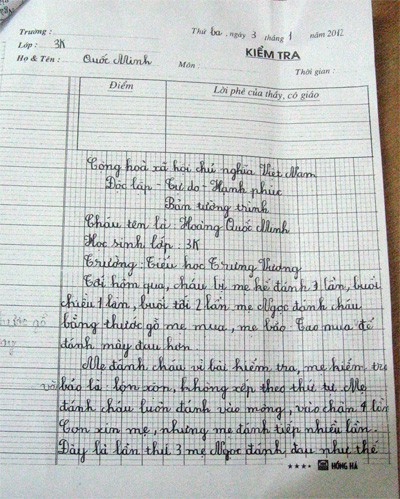 Trường :
Thứ ba, ngày 3 tháng 1 năm 2012
Lớp : 3K
KIỂM TRA
Họ & Tên : Quốc Minh
Môn :
Thời gian :
Điểm
Lời phê của thầy, cô giáo
Cộng hoà xã hội chủ nghĩa Việt Nam
Độc lập - Tự do - Hạnh phúc
Bản tường trình
Cháu tên là : Hoàng Quốc Minh
Học sinh lớp : 3K
Trường : Tiểu học Trưng Vương
Tối hôm qua, cháu bị mẹ kế đánh 3 lần, buổi
chiều 1 lần, buổi tối 2 lần mẹ Ngọc đánh cháu
bằng thước gỗ mẹ mua, mẹ bảo Tao mua để
đánh mày đau hơn.
Mẹ đánh cháu vì bài kiểm tra, mẹ kiểm tra
và bảo là lộn xộn, không xếp theo thứ tự. Mẹ
đánh cháu luôn đánh vào mông, vào chân 4 lần
Con xin mẹ, nhưng mẹ đánh tiếp nhiều lần.
Đây là lần thứ 3 mẹ Ngọc đánh đau như thế
HỒNG HÀ